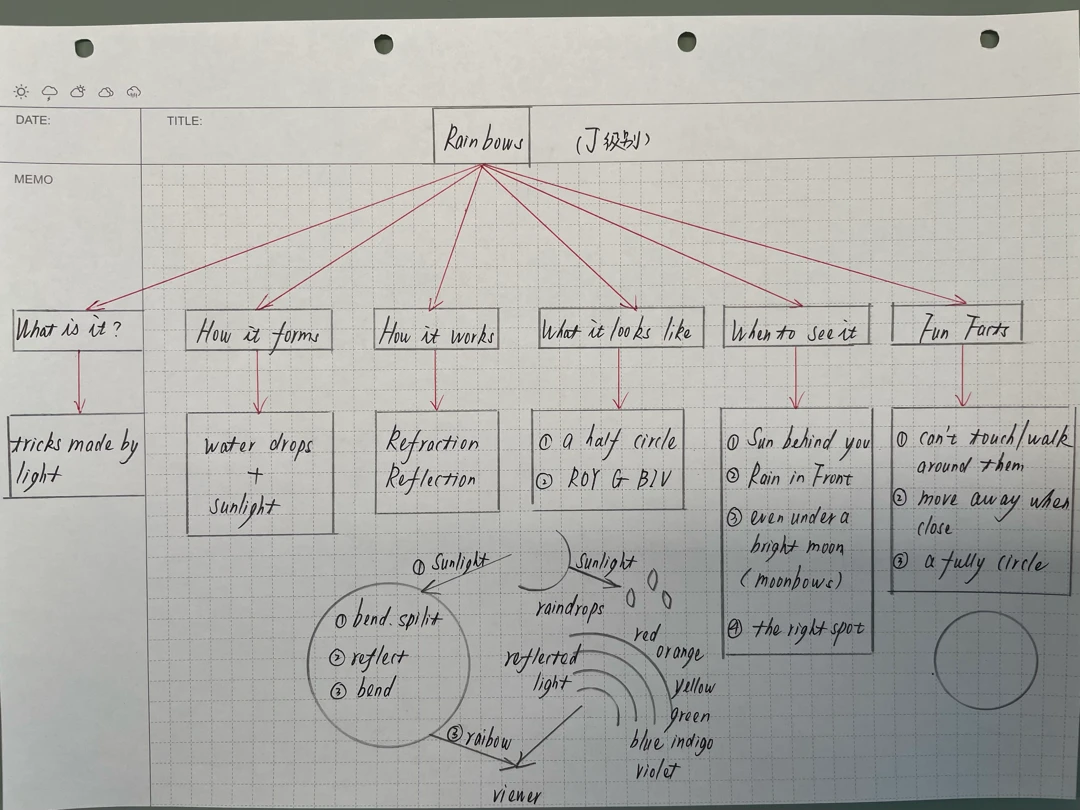 DATE:
TITLE:
Rainbows
(J级别)
MEMO
What is it?
How it forms
How it works
What it looks like
When to see it
Fun Facts
tricks made by
light
water drops
+
sunlight
Refraction
Reflection
① a half circle
② ROY G BIV
① Sun behind you
② Rain in Front
③ even under a
bright moon
(moonbows)
④ the right spot
① can't touch/walk
around them
② move away when
close
③ a fully circle
① Sunlight
① bend. spilit
② reflect
③ bend
③ raibow
Sunlight
raindrops
reflected
light
red
orange
yellow
green
blue indigo
violet
viewer